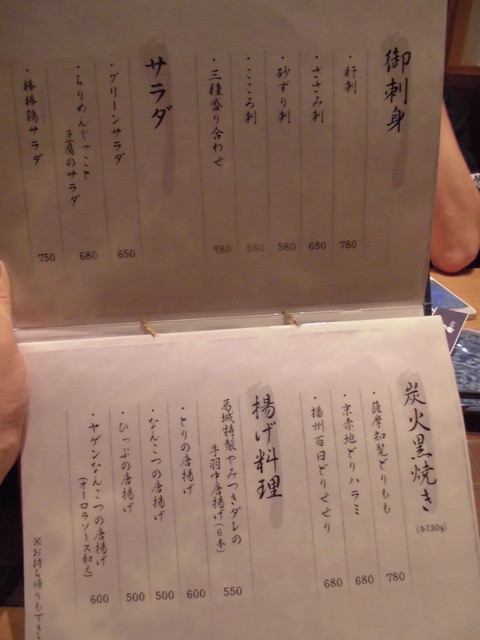 御刺身
・肝刺 780
・ささみ刺 680
・砂ずり刺 580
・こころ刺 580
・三種盛り合わせ 980
サラダ
・グリーンサラダ 650
・ちりめんじゃこと
豆腐のサラダ 680
・棒棒鶏サラダ 750
炭火黒焼き
・薩摩知覧どりもも 780
・京赤地どりハラミ 680
・播州百日どりせせり 680
揚げ料理
葛城特製やみつきダレの
手羽中唐揚げ(6本) 550
・とりの唐揚げ 600
・なんこつの唐揚げ 500
・ひっぷの唐揚げ 500
・ヤゲンなんこつの唐揚げ
(オーロラソース和え) 600
※お持ち帰りもできま